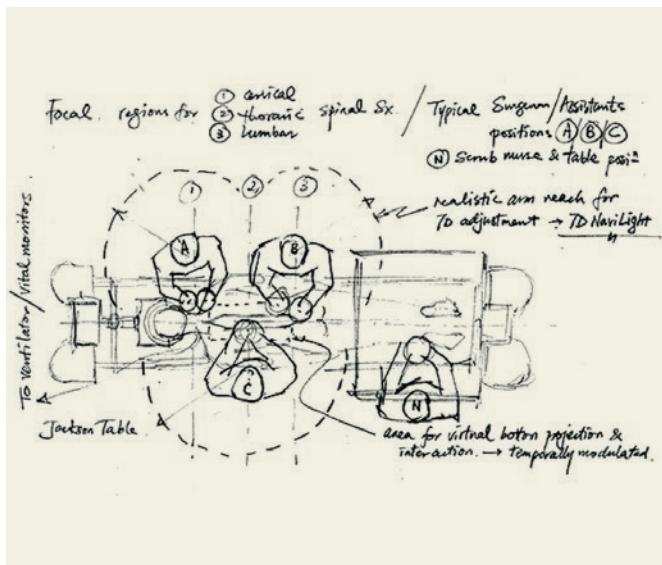 ① cervical
Focal regions for ② thoracic spinal Sx.
③ lumbar
/ Typical Surgeon/Assistants
positions Ⓐ/Ⓑ/Ⓒ
Ⓝ Scrub nurse & table posiⁿ
① ② ③
realistic arm reach for
7D adjustment → 7D NaviLight
A B
C
N
To ventilator/vital monitors
Jackson Table
area for virtual botton projection &
interaction. → temporally modulated.